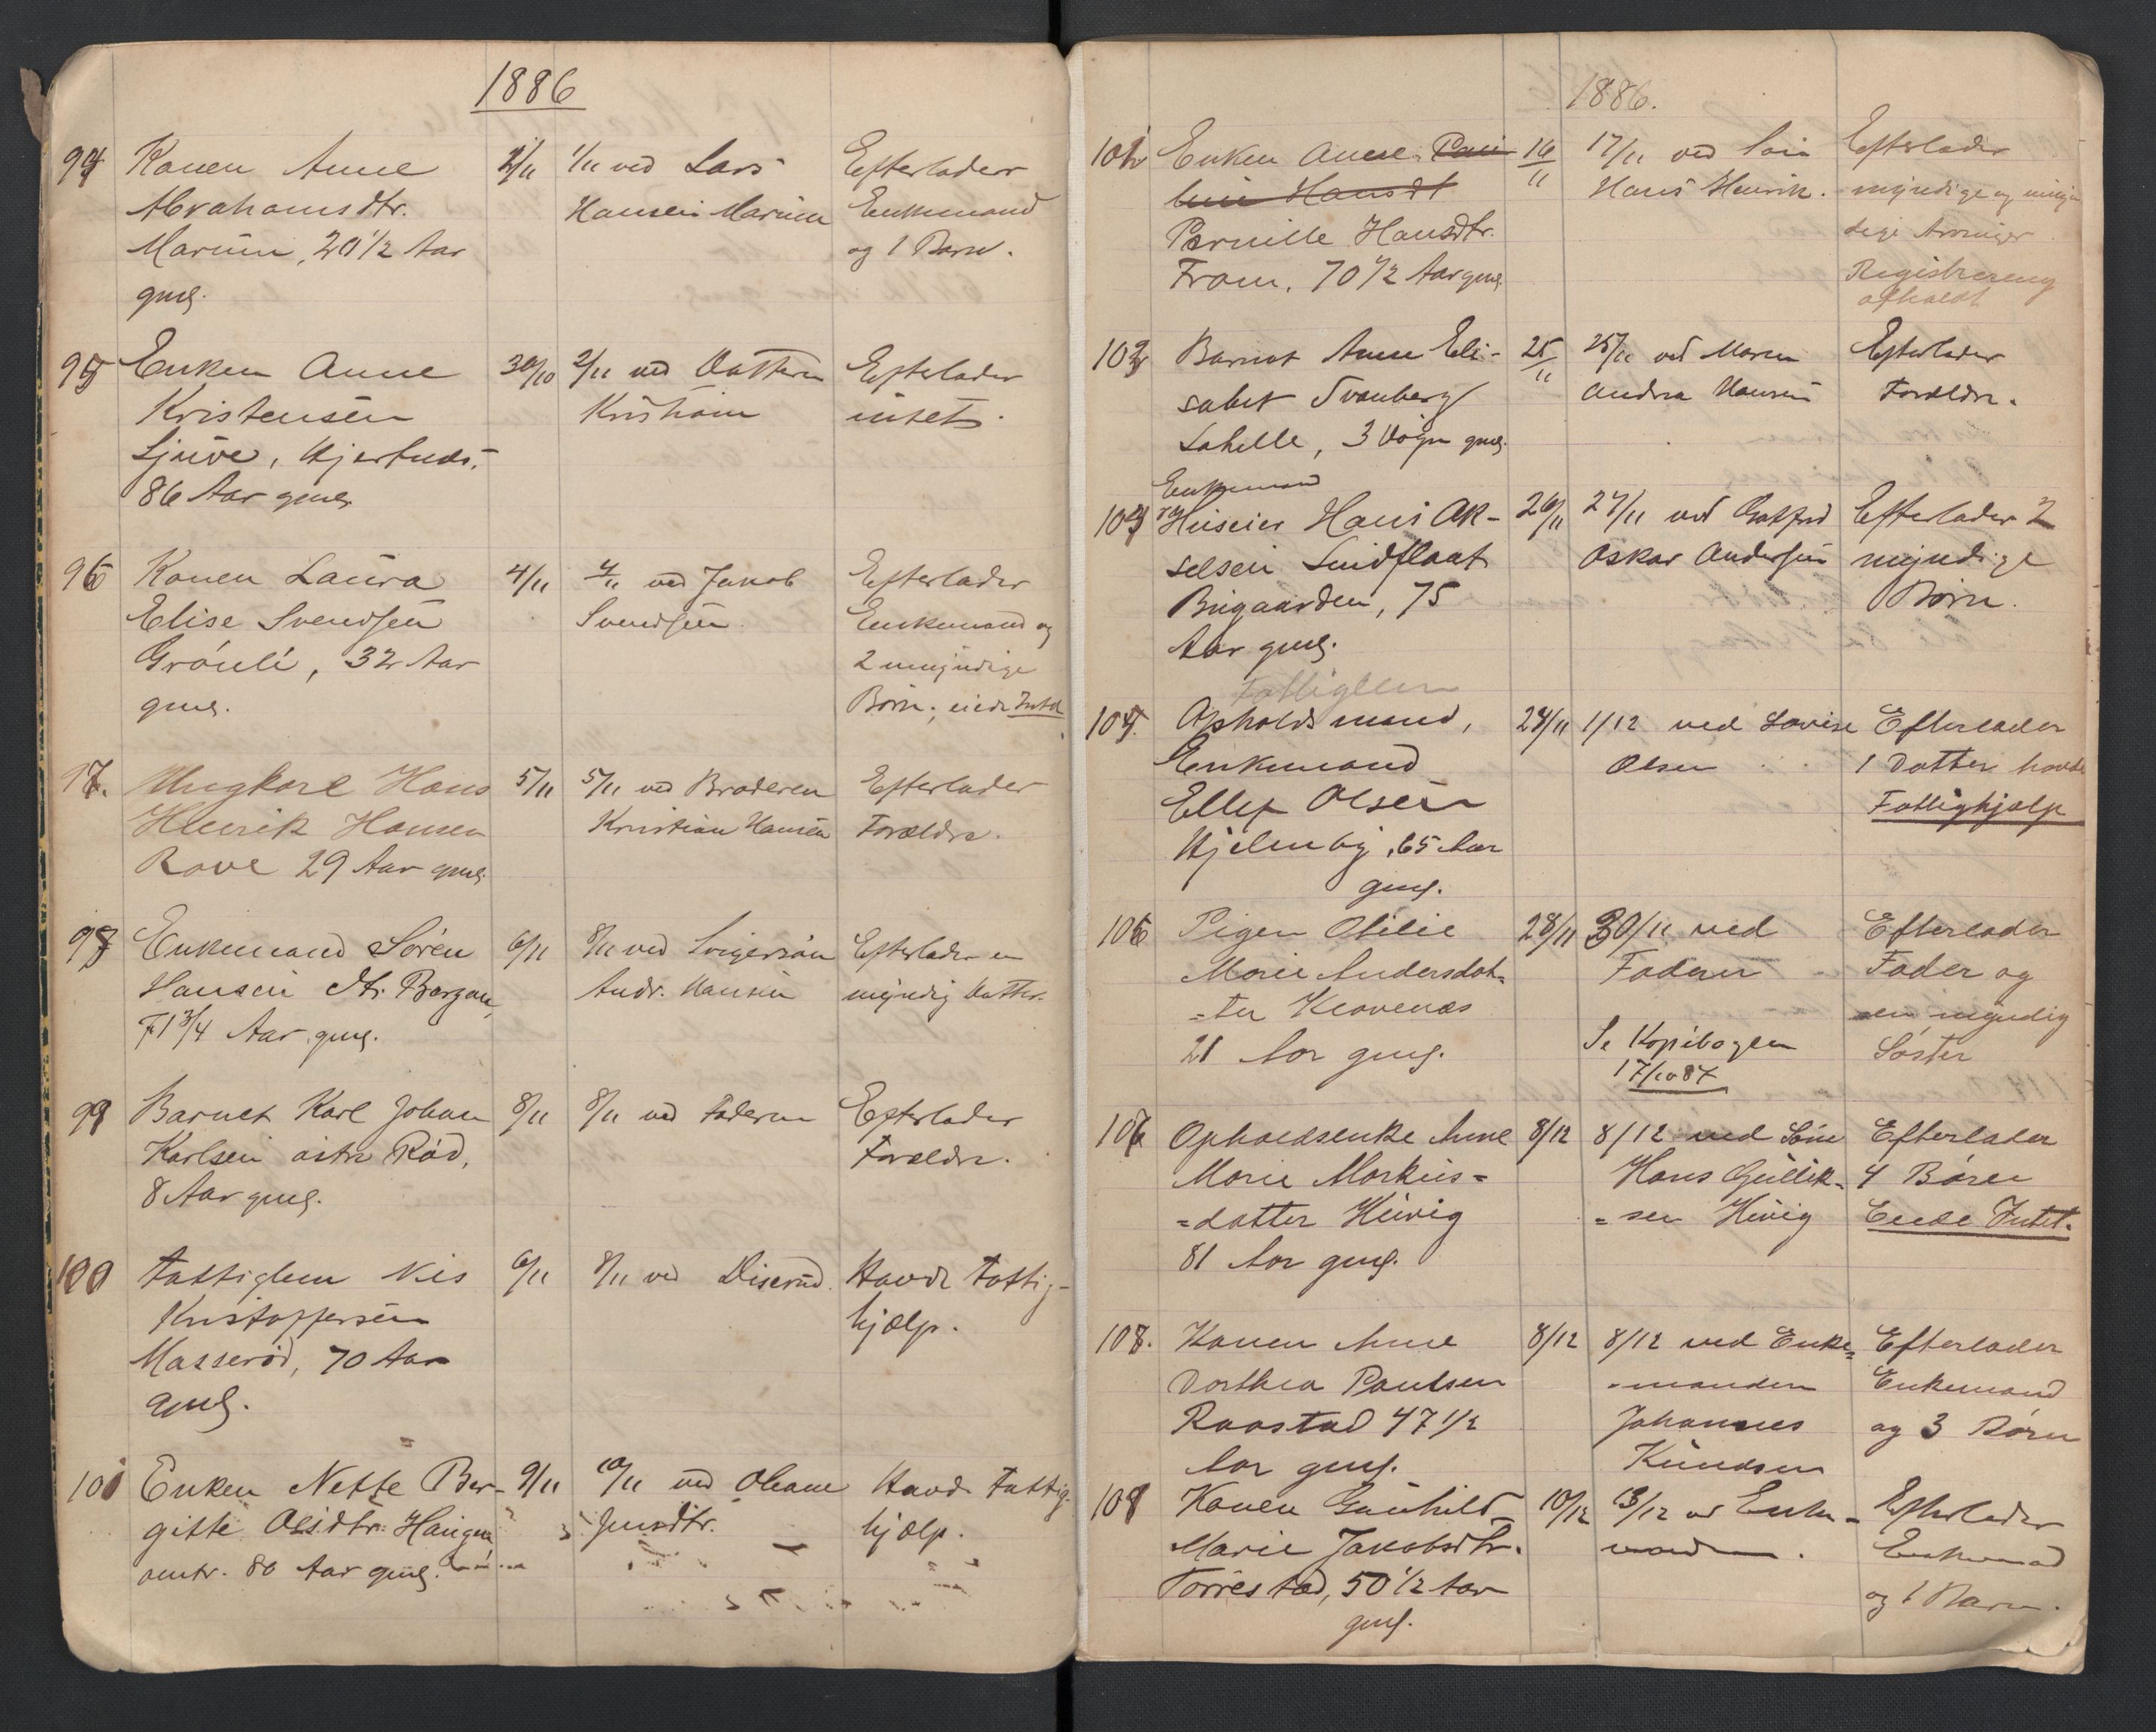 1886
94 Konen Anne 1/11 1/11 ved Lars Efterlader
Abrahamsdtr. Hansen Marum Enkemand
Marum, 20 1/2 Aar og 1 Barn.
gml.
95 Enken Anne 30/10 2/11 ved Datteren Efterlader
Kristensen intet.
86 Aar gml.
96 Konen Laura 4/11 4/11 ved Jakob Efterlader
Elise Svendsen Svendsen Enkemand og
Grönli, 32 Aar 2 umyndige
gml. Börn, eiede Intet
97. Ungkarl Hans 5/11 5/11 ved Broderen Efterlader
Henrik Hansen Kristian Hansen Forældre.
Rove 29 Aar gml
98 Enkemand Sören 6/11 8/11 ved Svigersön Efterlader en
Hansen St. Bergan, Andr. Hansen myndig Datter.
71 3/4 Aar gml.
99 Barnet Karl Johan 8/11 8/11 ved Faderen Efterlader
Karlsen östre Röd, Forældre.
8 Aar gml.
100 Fattiglem Nils 6/11 8/11 ved Diserud. Havde Fattig-
Kristoffersen hjælp.
Masseröd, 70 Aar
gml.
101 Enken Nette Ber- 9/11 10/11 ved Oleane Havde Fattig-
gitte Olsdtr. Haugen Jensdtr. hjælp.
omtr. 80 Aar gml.
1886.
102 Enken Anne 16/11 17/11 ved Sön Efterlader
Hansdt Hans Henrik. myndige og umyn
Pernille Hansdtr. dige Arvinger
Fram, 70 1/2 Aar gml. Registrering
afholdt
103 Barnet Anne Eli- 25/11 25/11 ved Maren Efterlader
sabet Svanberg Andrea Hansen Forældre.
3 Dage gml.
Enkemand
104 og Huseier Hans Ak- 26/11 27/11 ved Efterlader 2
selsen Lindflaat Oskar Andersen myndige
75 Börn.
Aar gml.
Fattiglem
105. Opholdsmand, 24/11 1/12 ved Lovise Efterlader
Enkemand Olsen 1 Datter havde
Ellef Olsen Fattighjælp
65 Aar
gml.
106 Pigen Otilie 28/11 30/11 ved Efterlader
Marie Andersdat= Faderen Fader og
=ter Klavenæs en myndig
21 Aar gml. Se Kopibogen Söster
17/10 87
107 Opholdsenke Anne 8/12 8/12 ved Sönn Efterlader
Marie Markus= Hans Gullik= 4 Börn
=datter Huvig =sen Huvig Eiede Intet.
81 Aar gml.
108. Konen Anne 8/12 8/12 ved Enke= Efterlader
Dorthea Paulsen =manden Enkemand
Raastad 47 1/2 Johannes og 3 Börn
Aar gml. Knudsen
109 Konen Gunhild 10/12 13/12 ved Enke- Efterlader
Marie Jakobsdtr. manden. Enkemand
Torrestad, 50 1/2 Aar og 1 Barn.
gml.